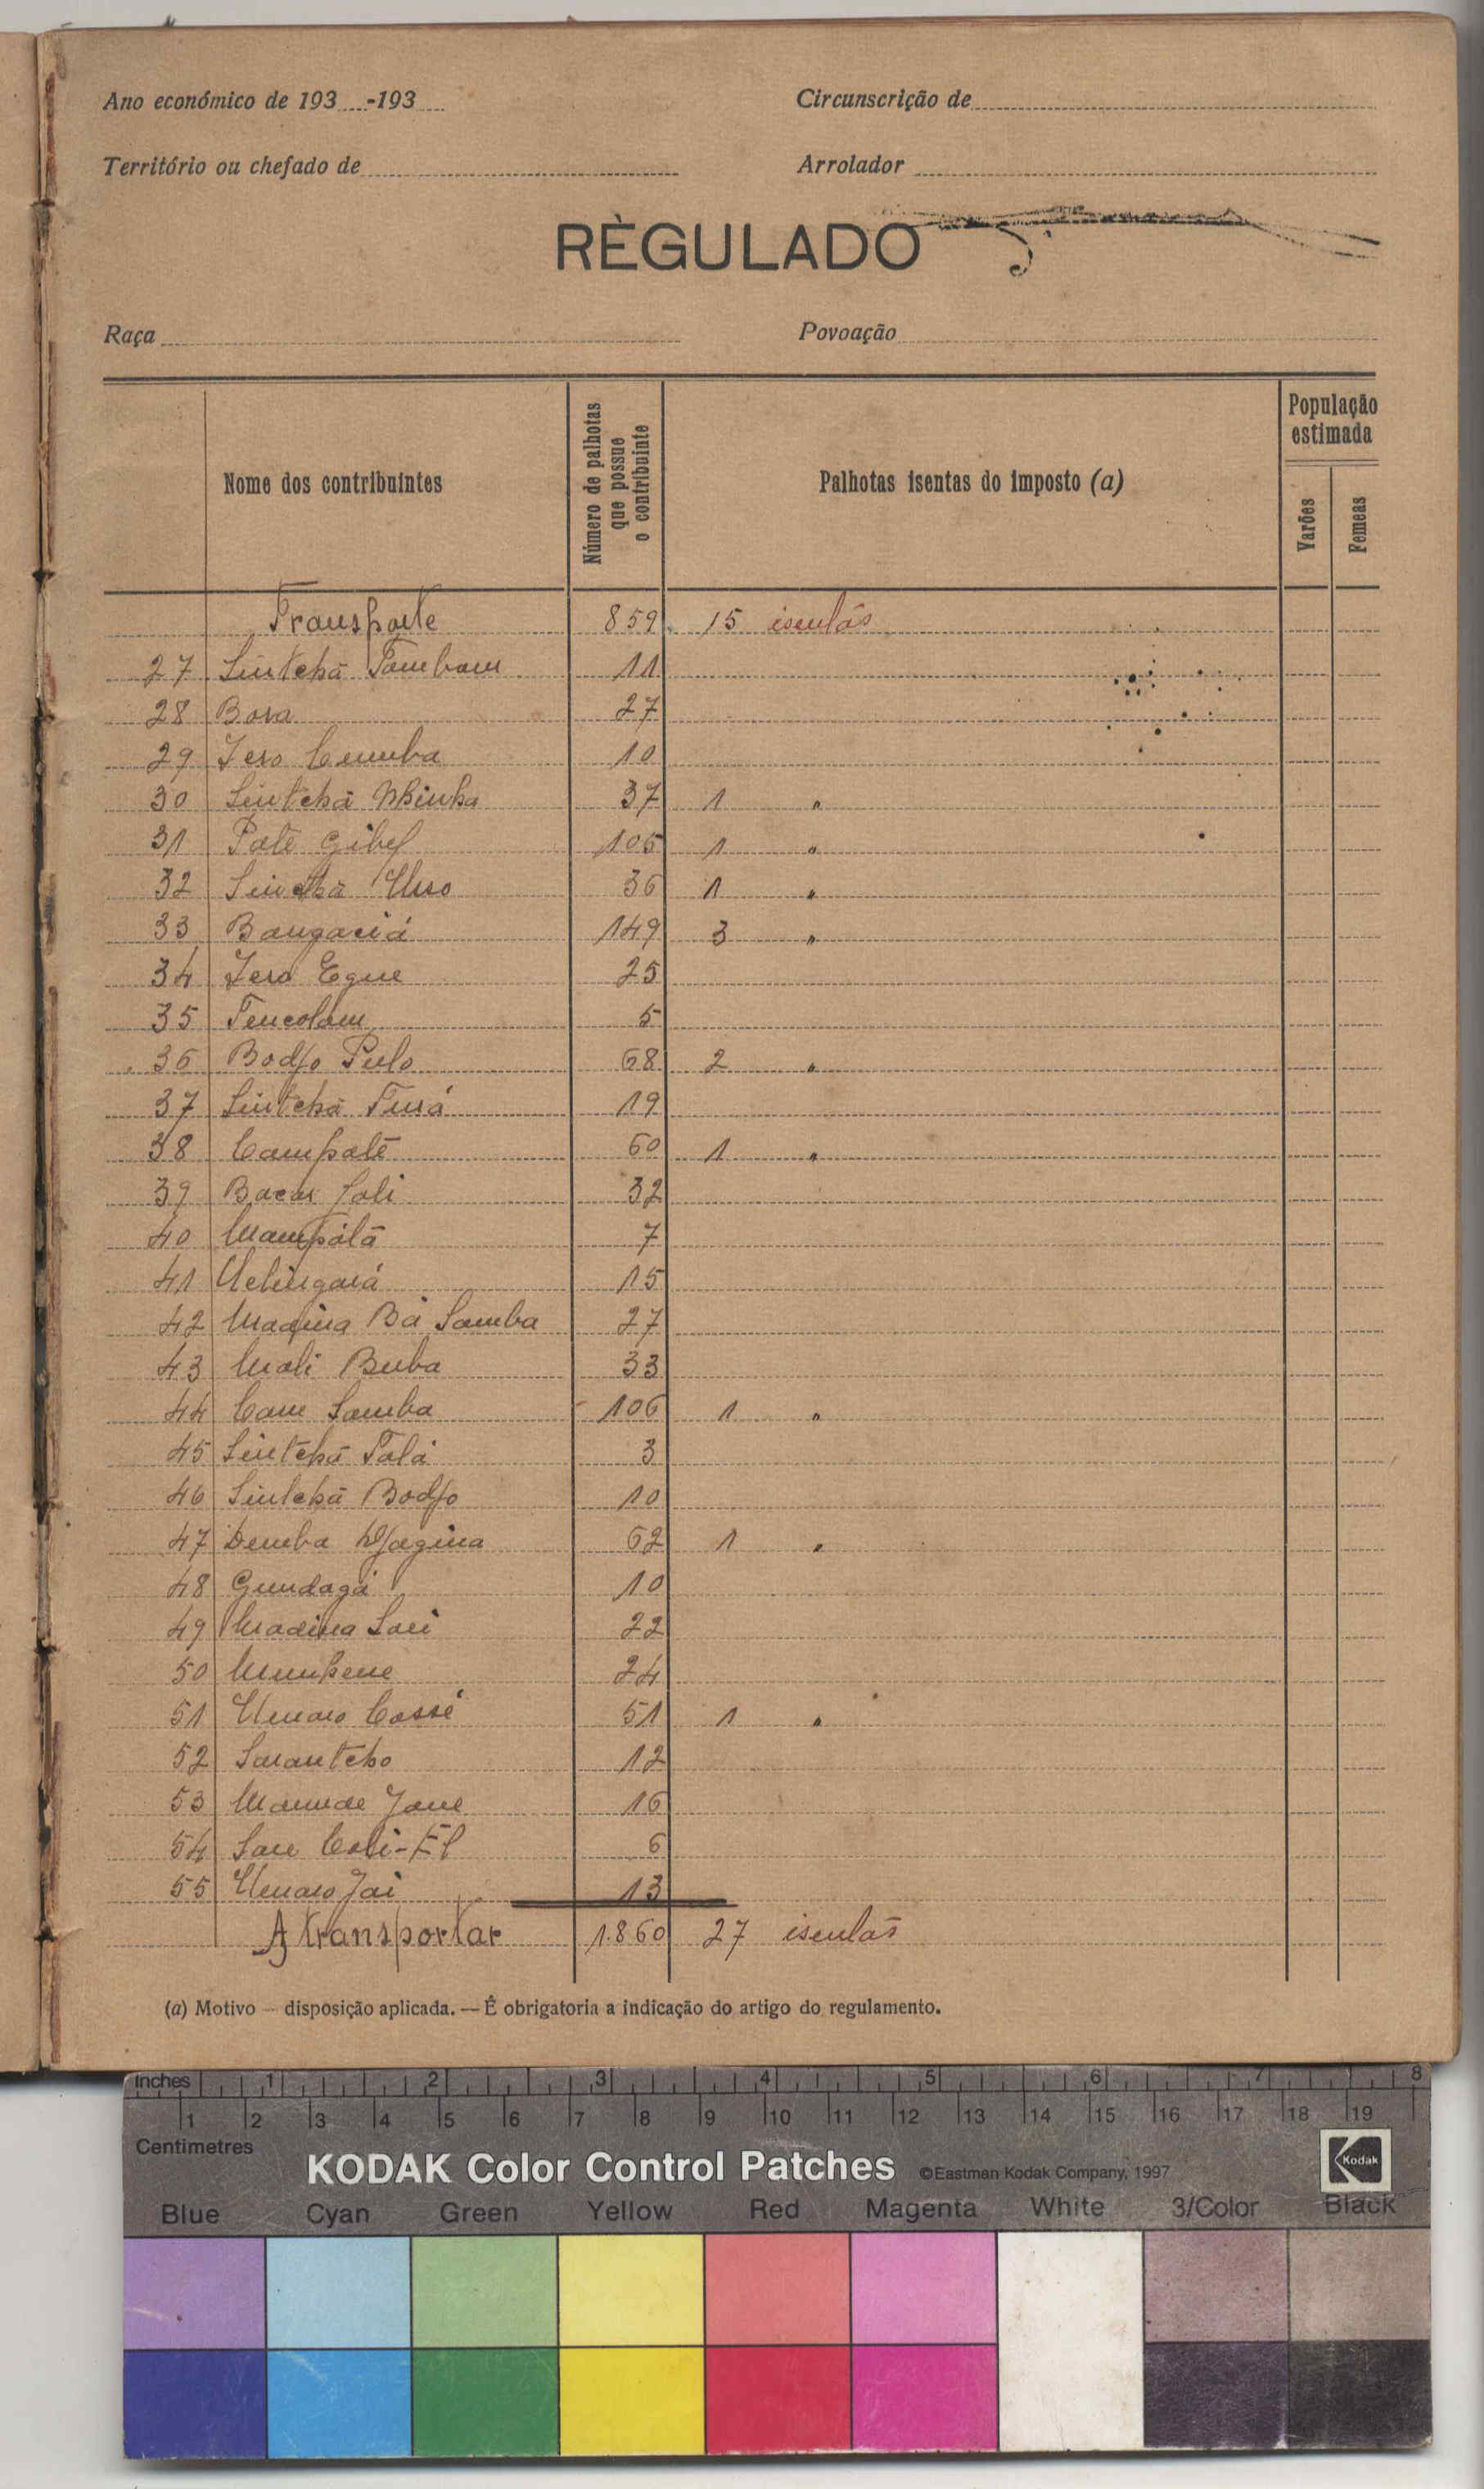 Ano económico de 193 -193
Circunscrição de
Território ou chefado de
Arrolador
RÈGULADO
Raça
Povoação
Nome dos contribuintes
Número de palhotas que possue o contribuinte
Palhotas isentas do imposto (a)
População estimada
Varões
Femeas
Transporte 859 15 isentas
27 Sintchã Tambam 11
28 Bora 27
29 Jero Cumba 10
30 Sintchã 37 1 "
31 Paté Gibel 106 1 "
32 Sintchã 36 1 "
33 Bangaciá 149 3 "
34 Jero Egue 25
35 Tencolam 5
36 Bodjo Pulo 68 2 "
37 Sintchã Turá 19
38 Campatê 60 1 "
39 Bacar Joli 32
40 Mampátã 7
41 15
42 Madina Bá Samba 27
43 Mali Buba 33
44 Cam Samba 106 1 "
45 Sintchã Palá 3
46 Sintchã Bodjo 10
47 Demba 62 1 "
48 Gundagá 10
49 Madina Sari 22
50 24
51 Umaro Cossé 51 1 "
52 Sarantcho 12
53 16
54 Sare Coli-Êl 6
55 Umaro Jai 13
A transportar 1.860 27 isentas
(a) Motivo — disposição aplicada. — Ê obrigatoria a indicação do artigo do regulamento.
Inches 1 2 3 4 5 6 7 8
1 2 3 4 5 6 7 8 9 10 11 12 13 14 15 16 17 18 19
Centimetres
KODAK Color Control Patches ©Eastman Kodak Company, 1997 Kodak
Blue Cyan Green Yellow Red Magenta White 3/Color Black